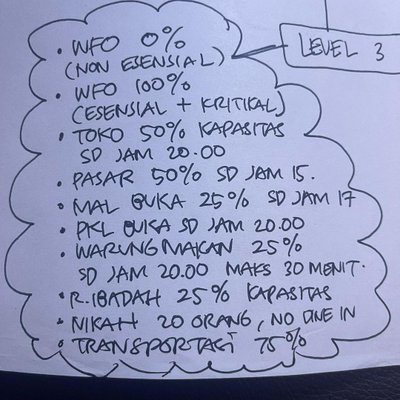 LEVEL 3
• WFO 0%
(NON ESENSIAL)
• WFO 100%
(ESENSIAL + KRITIKAL)
• TOKO 50% KAPASITAS
SD JAM 20.00
• PASAR 50% SD JAM 15.
• MAL BUKA 25% SD JAM 17
• PKL BUKA SD JAM 20.00
• WARUNG MAKAN 25%
SD JAM 20.00 MAKS 30 MENIT.
• R.IBADAH 25% KAPASITAS
• NIKAH 20 ORANG, NO DINE IN
• TRANSPORTASI 75%